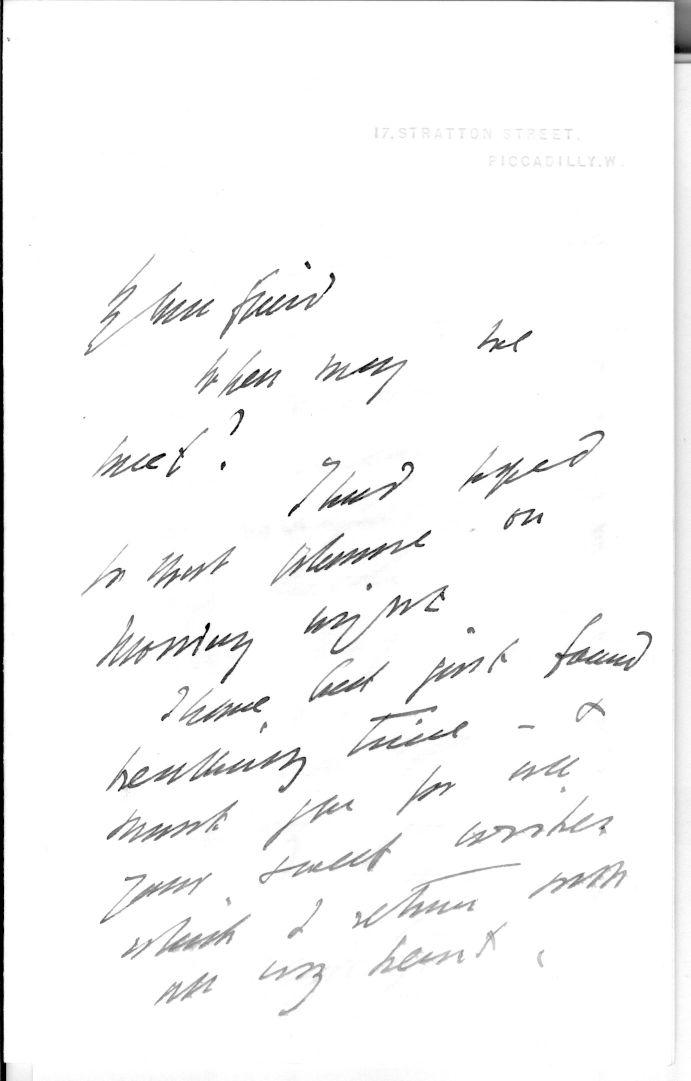 17, STRATTON STREET.
PICCADILLY. W.
My dear friend
When may we
meet?
I had hoped
to
on
Monday night
I have but just found
breathing time – &
thank you for all
your sweet wishes
which I return with
all my heart.